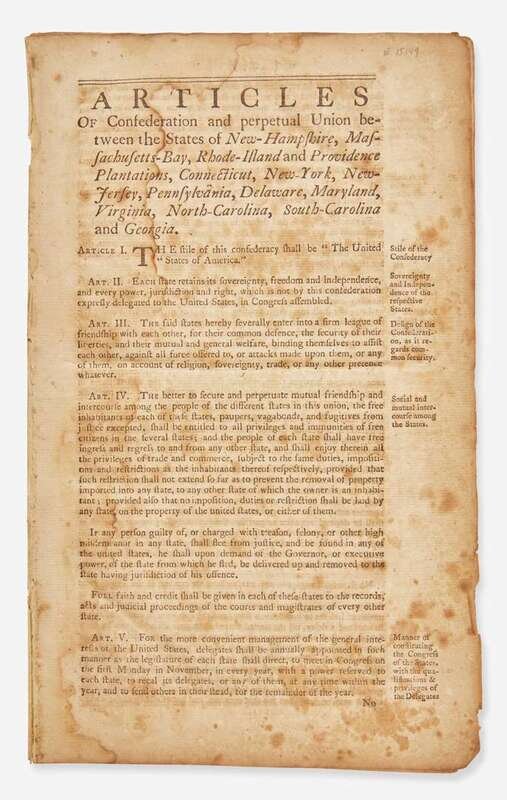 № 15149
ARTICLES
OF Confederation and perpetual Union be-
tween the States of New-Hampſhire, Maſ-
ſachuſetts-Bay, Rhode-Iſland and Providence
Plantations, Connecticut, New-York, New-
Jerſey, Pennſylvania, Delaware, Maryland,
Virginia, North-Carolina, South-Carolina
and Georgia.
ARTICLE I. THE ſtile of this confederacy ſhall be "The United
"States of America."
Stile of the
Confederacy
ART. II. EACH ſtate retains its ſovereignty, freedom and independence,
and every power, juriſdiction and right, which is not by this confederation
expreſly delegated to the United States, in Congreſs aſſembled.
Sovereignty
and Indepen-
dence of the
reſpective
States.
ART. III. THE ſaid ſtates hereby ſeverally enter into a firm league of
friendſhip with each other, for their common defence, the ſecurity of their
liberties, and their mutual and general welfare, binding themſelves to aſſiſt
each other, againſt all force offered to, or attacks made upon them, or any
of them, on account of religion, ſovereignty, trade, or any other pretence
whatever.
Deſign of the
Confederati-
on, as it re-
gards com-
mon ſecurity.
ART. IV. THE better to ſecure and perpetuate mutual friendſhip and
intercourſe among the people of the different ſtates in this union, the free
inhabitants of each of theſe ſtates, paupers, vagabonds, and fugitives from
juſtice excepted, ſhall be entitled to all privileges and immunities of free
citizens in the ſeveral ſtates; and the people of each ſtate ſhall have free
ingreſs and regreſs to and from any other ſtate, and ſhall enjoy therein all
the privileges of trade and commerce, ſubject to the ſame duties, impoſiti-
ons and reſtrictions as the inhabitants thereof reſpectively, provided that
ſuch reſtriction ſhall not extend ſo far as to prevent the removal of property
imported into any ſtate, to any other ſtate of which the owner is an inhabi-
tant; provided alſo that no impoſition, duties or reſtriction ſhall be laid by
any ſtate, on the property of the united ſtates, or either of them.
Social and
mutual inter-
courſe among
the States.
IF any perſon guilty of, or charged with treaſon, felony, or other high
miſdemeanor in any ſtate, ſhall flee from juſtice, and be found in any of
the united ſtates, he ſhall upon demand of the Governor, or executive
power, of the ſtate from which he fled, be delivered up and removed to the
ſtate having juriſdiction of his offence.
FULL faith and credit ſhall be given in each of theſe ſtates to the records,
acts and judicial proceedings of the courts and magiſtrates of every other
ſtate.
ART. V. FOR the more convenient management of the general inte-
reſts of the United States, delegates ſhall be annually appointed in ſuch
manner as the legiſlature of each ſtate ſhall direct, to meet in Congreſs on
the firſt Monday in November, in every year, with a power reſerved to
each ſtate, to recal its delegates, or any of them, at any time within the
year, and to ſend others in their ſtead, for the remainder of the year.
Manner of
conſtituting
the Congreſs
of the States,
with the qua-
lifications &
privileges of
the Delegates
No